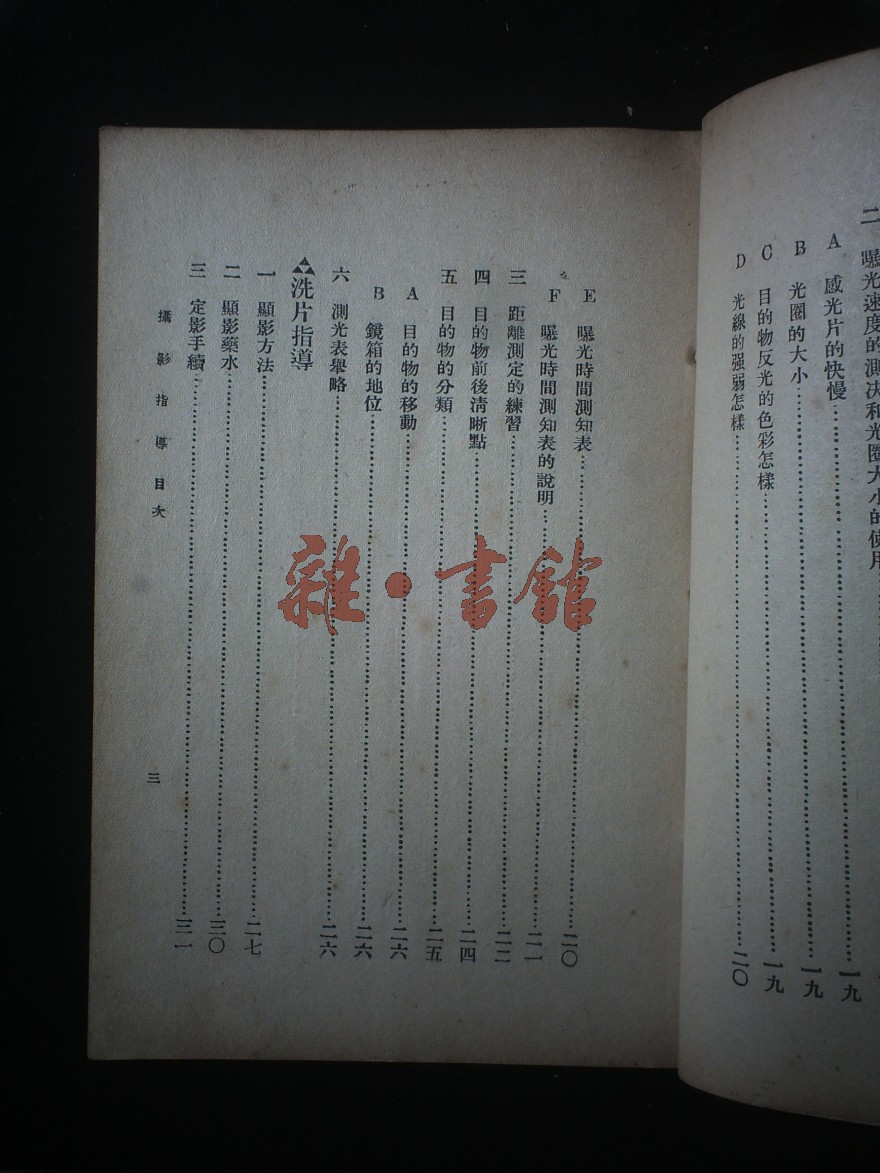 二 曝光速度的測决和光圈大小的使用
A 感光片的快慢……一九
B 光圈的大小……一九
C 目的物反光的色彩怎樣……一九
D 光線的强弱怎樣……二〇
E 曝光時間測知表……二〇
F 曝光時間測知表的說明……二一
三 距離測定的練習……二二
四 目的物前後清晰點……二四
五 目的物的分類……二五
A 目的物的移動……二六
B 鏡箱的地位……二六
六 測光表舉略……二六
洗片指導
一 顯影方法……二七
二 顯影藥水……三〇
三 定影手續……三一
攝影指導目次
三
雜·書館